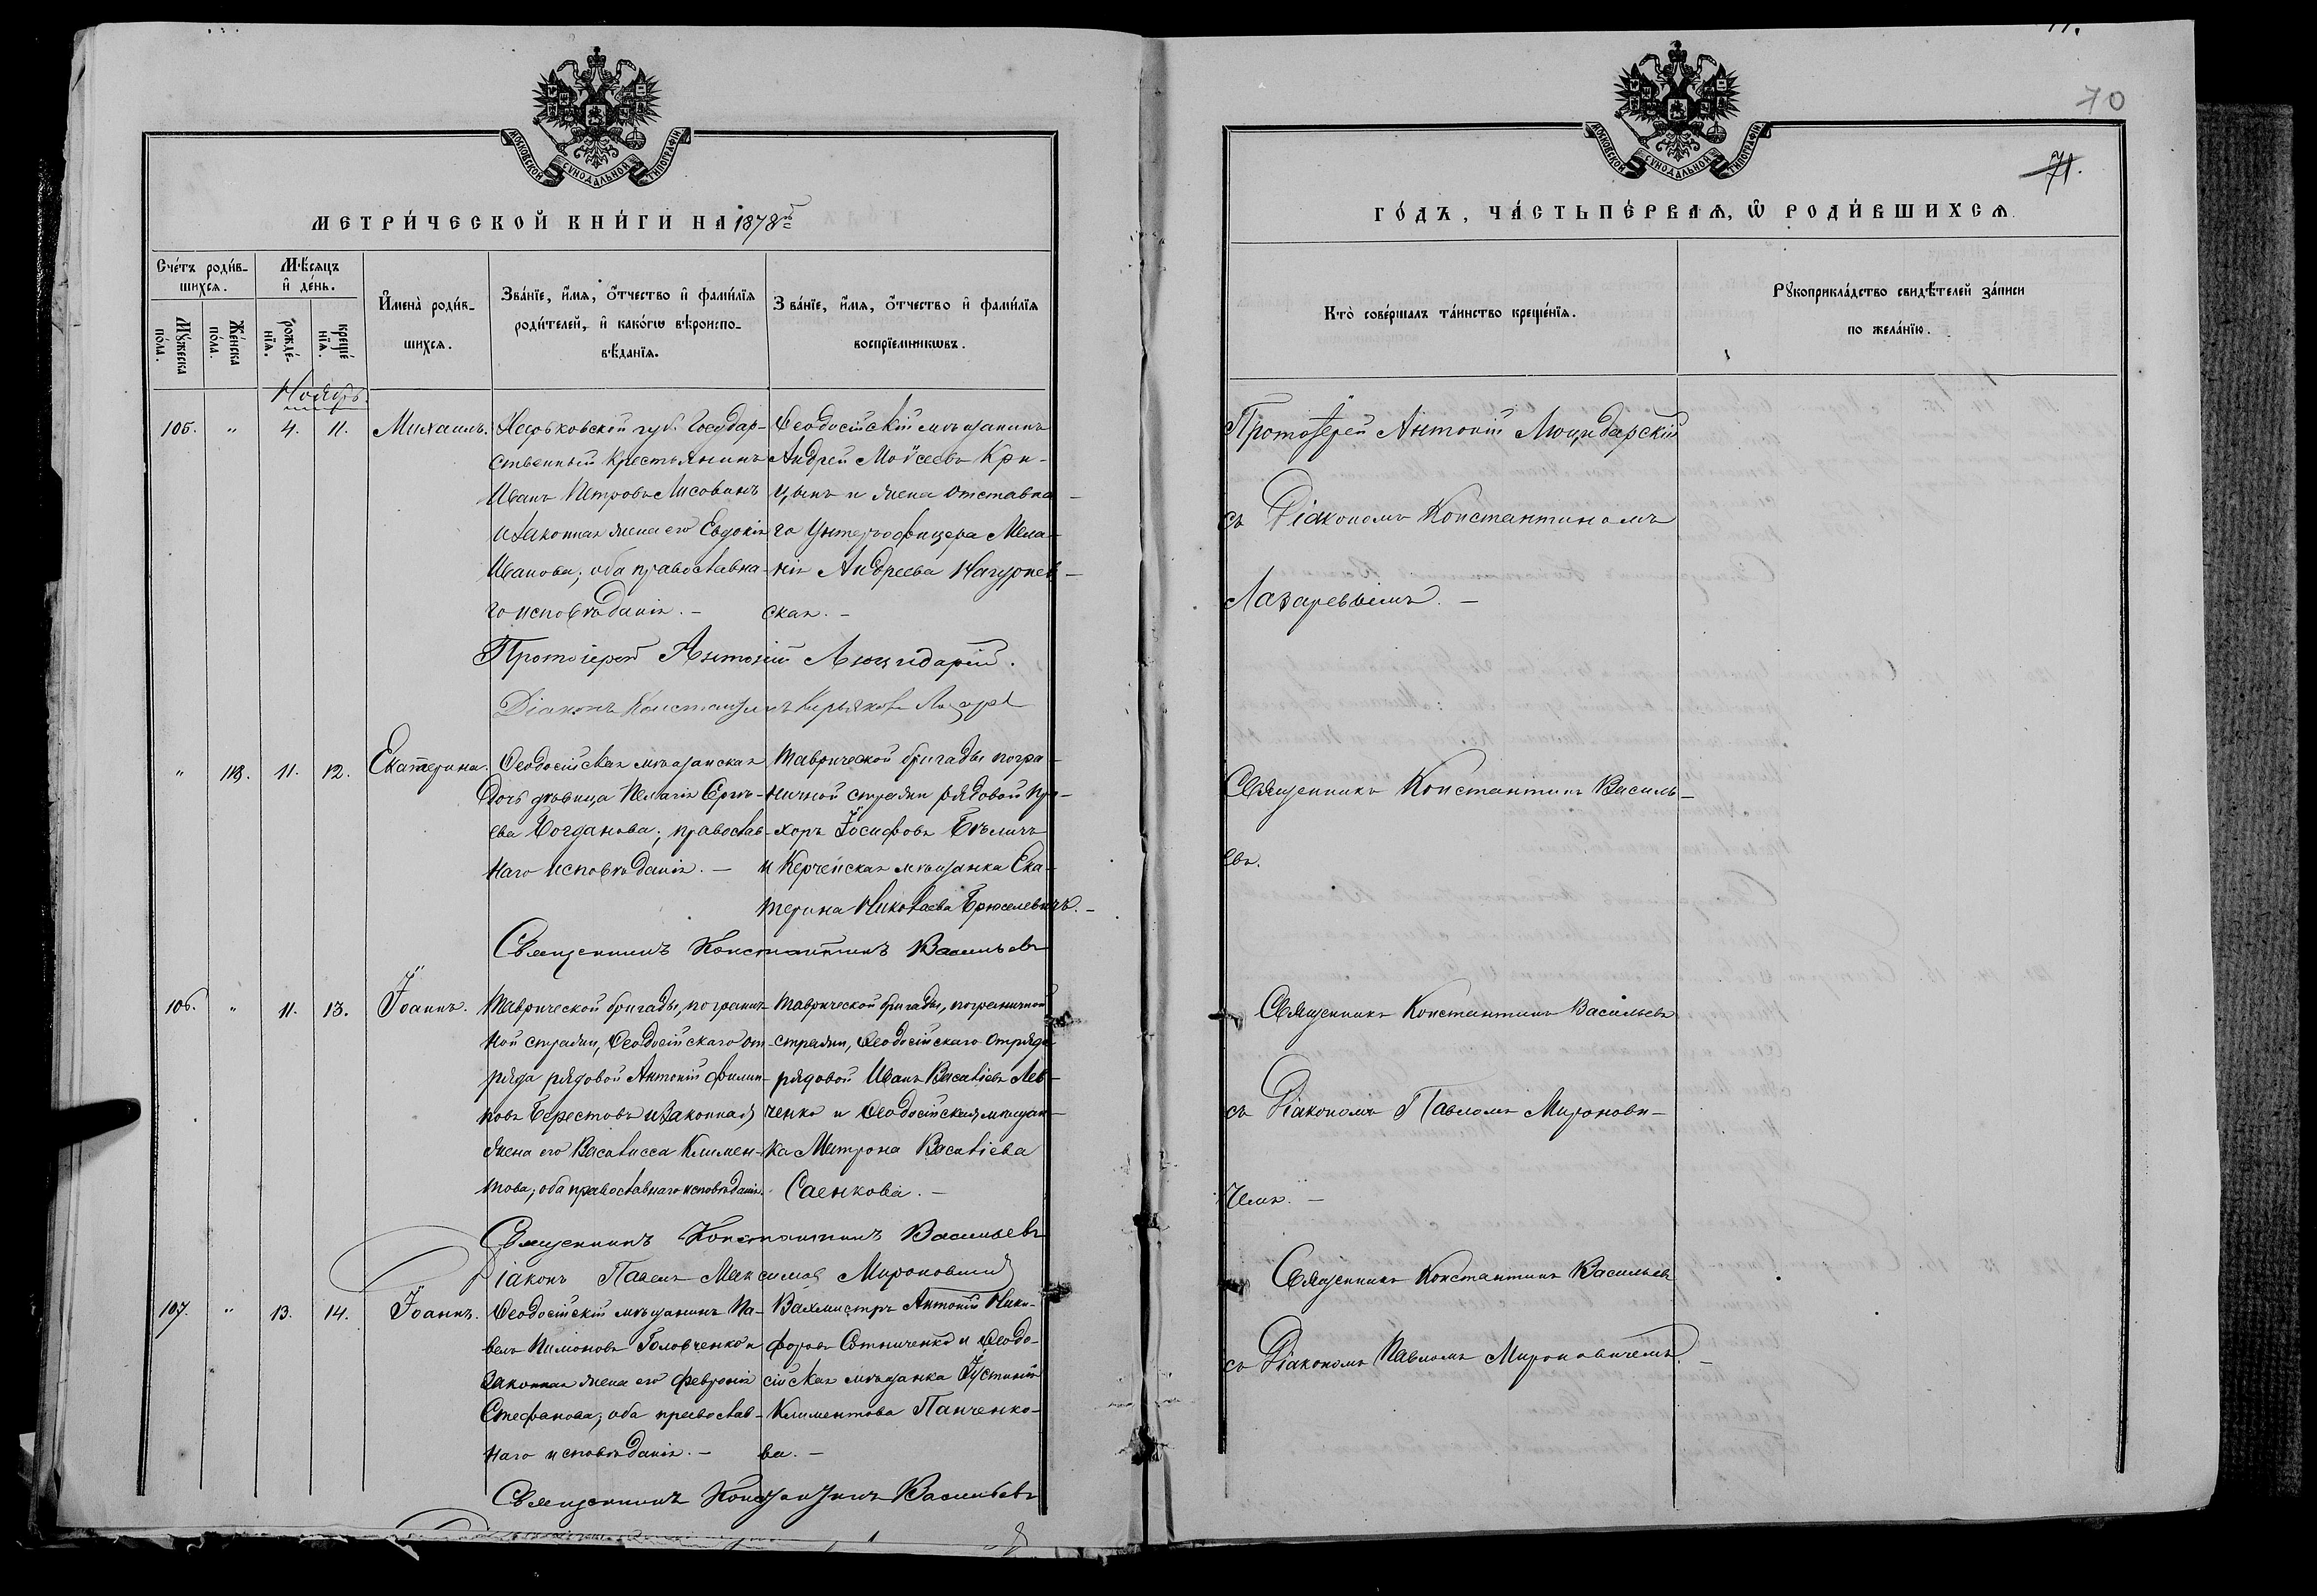 70
71.
МОСКОВСКОЙ СѴНОДАЛЬНОЙ ТИПОГРАФІИ
МЕТРИ́ЧЕСКОЙ КНИ́ГИ НА 1878й
Сче́тъ роди́в-
шихся.
Мѣ́сяцъ
и҆ де́нь.
Мꙋ́жеска
по́ла.
Же́нска
по́ла.
рожде́-
нїя.
креще́
нїя.
И҆мена̀ роди́в-
шихся.
Зва́нїе, и҆́мя, ѻ҆́тчество и҆ фами́лїя
роди́телей, и҆ како́гѡ вѣроиспо-
вѣ́данїя.
Зва́нїе, и҆́мя, ѻ҆́тчество и҆ фами́лїя
воспрїе́мникѡвъ.
Ноябрь.
105. " 4. 11. Михаилъ.
Харьковской губ. Государ-
ственный крестьянинъ
Иванъ Петровъ Лисовинъ
и законная жена его Евдокія
Иванова; оба православна-
го исповѣданія. –
Ѳеодосійскій мѣщанинъ
Андрей Моѵсеевъ Кри-
цынъ и жена отставна-
го Унтеръ офицера Мела-
нія Андреева Нагурнев-
ская. –
Протоіерей Антоній Люцидарскій.
Діаконъ Константинъ
" 113. 11. 12. Екатерина.
Ѳеодосійская мѣщанская
дочь дѣвица Пелагія Ерми-
ева Богданова; православ-
наго исповѣданія. –
Таврической бригады погра-
ничной стражи рядовой Про-
хоръ Іосифовъ Бѣличъ
и Керченская мѣщанка Ека-
терина Николаева Брюселевичъ. –
Священникъ Константинъ Васильевъ
106. " 11. 13. Іоаннъ.
Таврической бригады, погранич-
ной стражи, Ѳеодосійскаго от-
ряда рядовой Антоній Филип-
повъ Берестовъ и законная
жена его Василисса Климен-
това; оба православнаго исповѣданія.
Таврической бригады, пограничной
стражи, Ѳеодосійскаго отряда
рядовой Иванъ Васильевъ Лев-
ченко и Ѳеодосійская мѣщан-
ка Матрона Васильева
Саенкова. –
Священникъ Константинъ Васильевъ
Діаконъ Павелъ Максимовъ Мироновичъ
107. " 13. 14. Іоаннъ.
Ѳеодосійскій мѣщанинъ Па-
велъ Пимоновъ Головченко и
законная жена его Февронія
Стефанова; оба православ-
наго исповѣданія. –
Вахмистръ Антоній Ники-
форовъ Сотниченко и Ѳеодо-
сійская мѣщанка Іустинія
Климентова Панченко-
ва. –
Священникъ Константинъ Васильевъ
МОСКОВСКОЙ СѴНОДАЛЬНОЙ ТИПОГРАФІИ
ГО́ДЪ, ЧА́СТЬ ПЕ́РВАЯ, Ѡ҆ РОДИ́ВШИХСЯ.
Кто̀ соверша́лъ та́инство креще́нїя.
Рꙋкоприкла́дство свидѣ́телей за́писи
по жела́нїю.
Протоіерей Антоній Люцидарскій
съ Діакономъ Константиномъ
Лазаревымъ. –
Священникъ Константинъ Василь-
евъ.
Священникъ Константинъ Васильевъ
съ Діакономъ Павломъ Миронови-
чемъ. –
Священникъ Константинъ Васильевъ
съ Діакономъ Павломъ Мироновичемъ. –